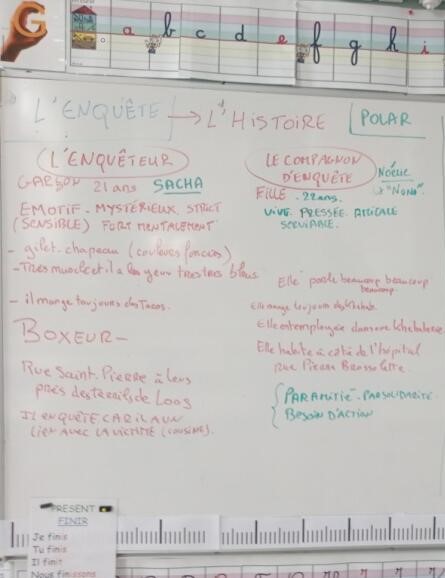 G
a b c d e f g h i
L'ENQUÊTE → L'HISTOIRE POLAR
L'ENQUÊTEUR
GARÇON 21 ans SACHA
EMOTIF - MYSTÉRIEUX. STRICT
(SENSIBLE) FORT MENTALEMENT
- gilet. chapeau (couleurs foncées)
- Très musclé et il a les yeux très très bleus
- il mange toujours des Tacos.
BOXEUR -
Rue Saint-Pierre à Lens
près des terrils de Loos
IL ENQUÊTE CAR IL A UN
LIEN AVEC LA VICTIME (COUSINE).
LE COMPAGNON
D'ENQUÊTE
Noélie
"NONO"
FILLE - 22 ans.
VIVE. PRESSÉE. AMICALE
SERVIABLE.
Elle parle beaucoup beaucoup
beaucoup.
Elle mange toujours des Kebabs.
Elle est employée dans une kebaberie.
Elle habite à côté de l'hôpital
rue Pierre Brossolette.
PAR AMITIÉ - PAR SOLIDARITÉ.
BESOIN D'ACTION
PRESENT
FINIR
Je finis
Tu finis
Il finit
Nous finissons